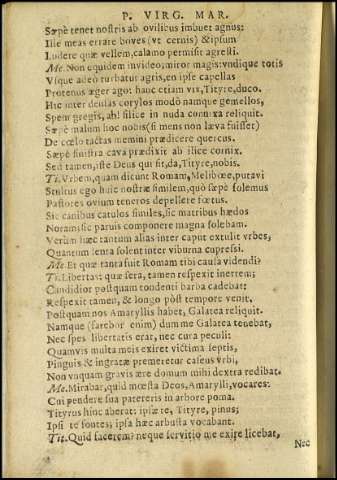 P. VIRG. MAR.
Sæpè tenet nostris ab ovilicus imbuet agnus:
Ille meas errare boves (vt cernis) & ipsum
Ludere quæ vellem, calamo permisit agresti.
Me. Non equidem invideo; miror magis: vndique totis
Vsque adeò turbatur agris, en ipse capellas
Protenus æger ago: hanc etiam vix, Tityre, duco.
Hic inter densas corylos modò namque gemellos,
Spem gregis, ah! silice in nuda connixa reliquit.
Sæpè malum hoc nobis (si mens non læva fuisset)
De cœlo tactas memini prædicere quercus.
Sæpè sinistra cava prædixit ab ilice cornix.
Sed tamen, iste Deus qui sit, da, Tityre, nobis.
Ti. Vrbem, quam dicunt Romam, Melibœe, putavi
Stultus ego huic nostræ similem, quò sæpè solemus
Pastores ovium teneros depellere fœtus.
Sic canibus catulos similes, sic matribus hædos
Noram: sic parvis componere magna solebam.
Verùm hæc tantum alias inter caput extulit vrbes,
Quantum lenta solent inter viburna cupressi.
Me. Et quæ tanta fuit Romam tibi causa videndi?
Ti. Libertas: quæ sera, tamen respexit inertem;
Candidior postquam tondenti barba cadebat:
Respexit tamen, & longo pòst tempore venit.
Postquam nos Amaryllis habet, Galatea reliquit.
Namque (fatebor enim) dum me Galatea tenebat,
Nec spes libertatis erat, nec cura peculî:
Quamvis multa meis exiret victima septis,
Pinguis & ingratæ premeretur caseus vrbi,
Non vnquam gravis ære domum mihi dextra redibat.
Me. Mirabar, quid mœsta Deos, Amarylli, vocares:
Cui pendere sua patereris in arbore poma.
Tityrus hinc aberat: ipsæ te, Tityre, pinus;
Ipsi te fontes; ipsa hæc arbusta vocabant.
Tit. Quid facerem? neque servitio me exire licebat,
Nec